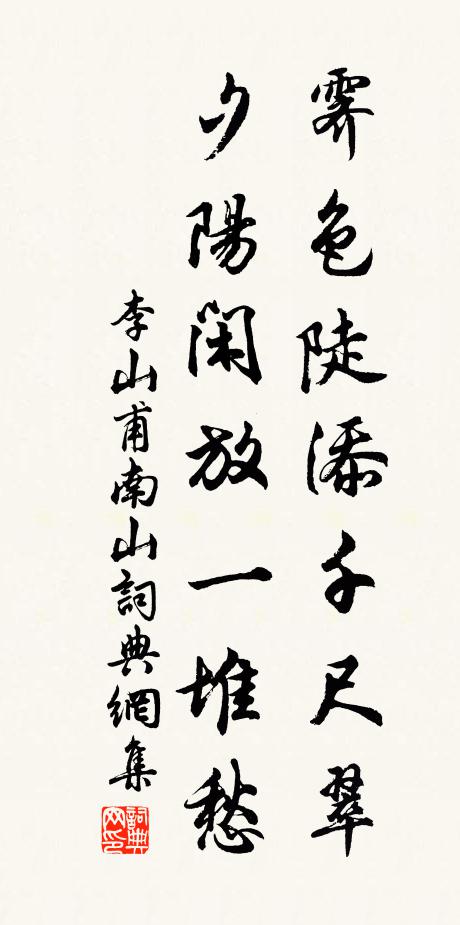 霽色陡添千尺翠
夕陽閑放一堆愁
李山甫南山詞典網集
詞典網印